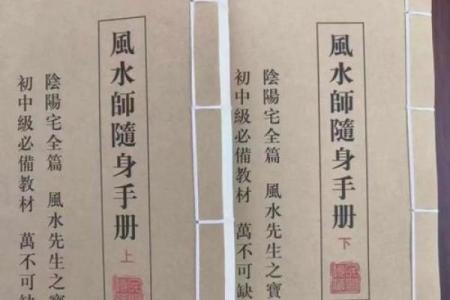 風水師隨身手册 上
陰陽宅全篇 風水先生之寶
初中級必備教材 萬不可缺
風水師隨身手册 下
陰陽宅全篇 風水先生之寶
初中級必備教材 萬不可缺